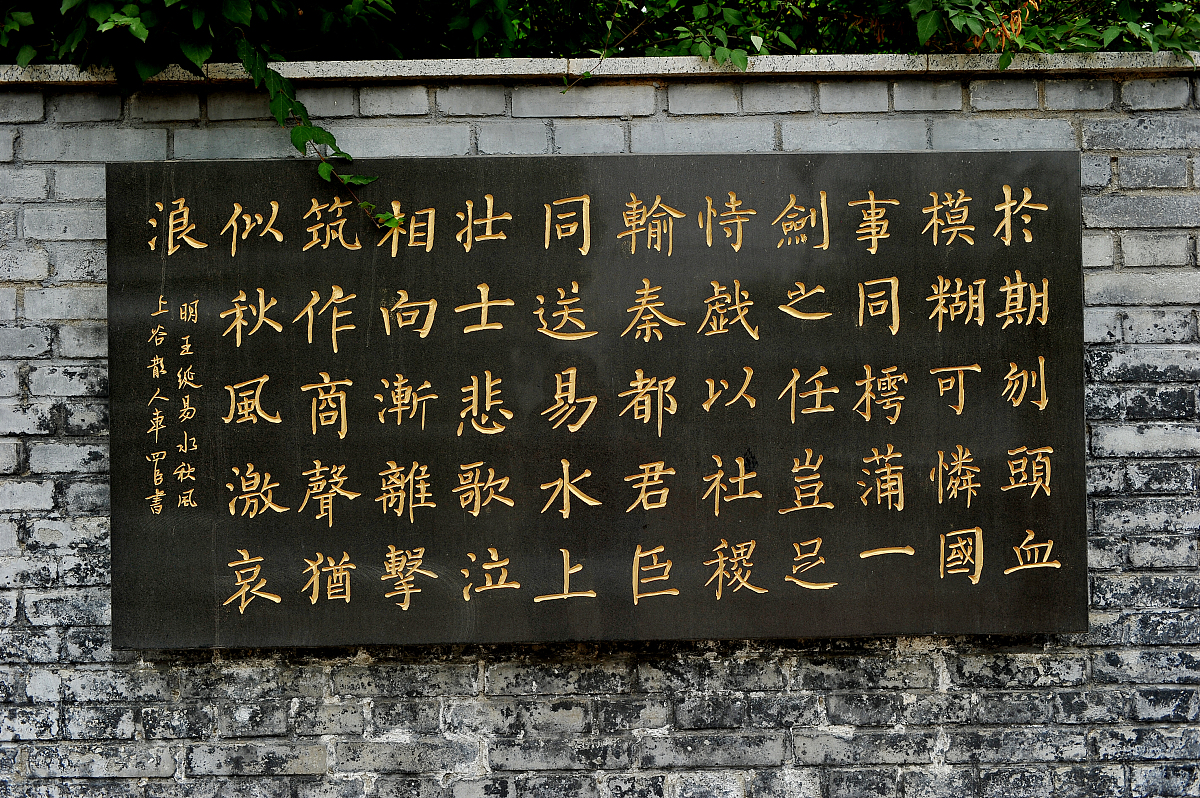 於期刎頭血
模糊可憐國
事同樗蒲一
劍之任豈足
恃戯以社稷
輸秦都君臣
同送易水上
壮士悲歌泣
相向漸離擊
筑作商聲猶
似秋風激哀
浪
明王綖易水秋風
上谷散人車書